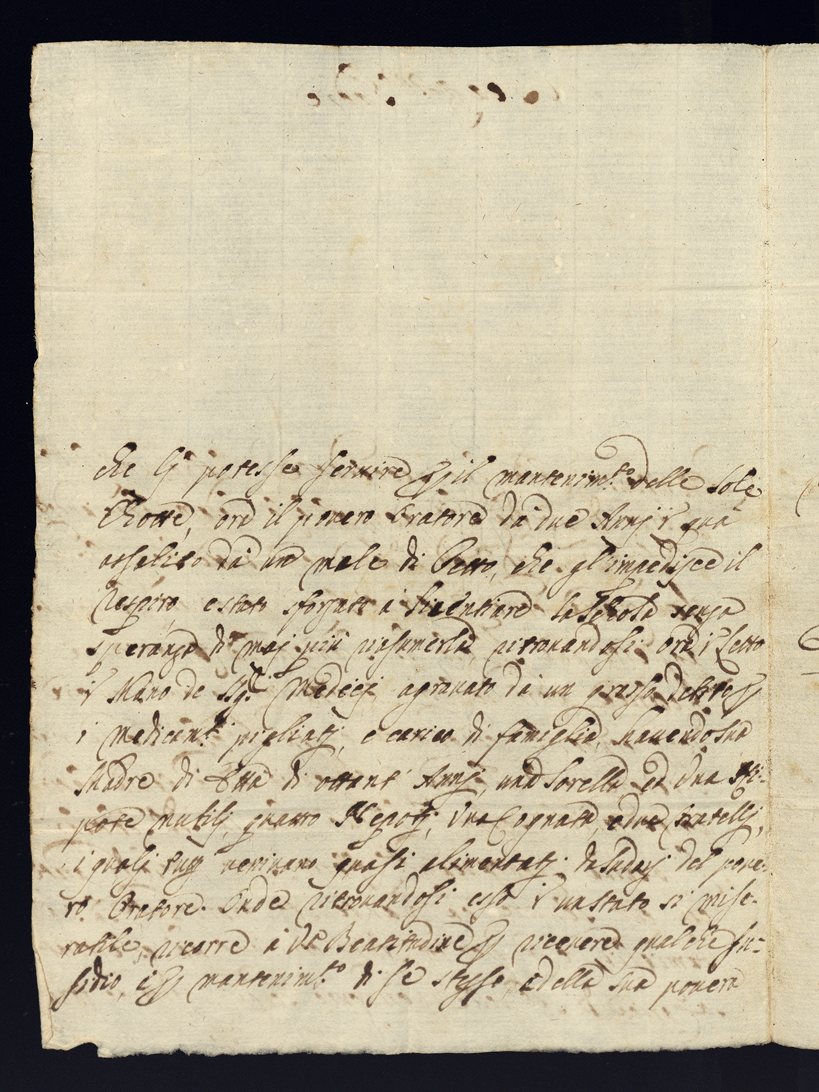 che gl potesse servire p il mantenim.to delle sole
Rotte, ora il povero Oratore da due Annj quà
assalito da un male di Petto, che gl'impedisce il
respiro, e stato sforzato à licentiare la Schola senza
speranza di maj più riasumerla, ritrovandosi ora Letto
Mano de Sig.ri Medicj agravato da un grosso debito p
i medicam.ti pigliatj, e carico di famiglia, havendo una
Madre di Età di ottant' Annj, una sorella ed una Ni-
pote nubilj, quatro Nepotj, una Cognata, e due fratellj,
i qualj tuttj venivano quasi alimentatj da sudorj del pove-
ro Oratore. Onde ritrovandosi esso uno stato sì mise-
rabile, ricorre à V.a Beatitudine p ricevere qualche su-
sidio, e p mantenim.to di se stesso, e della sua povera